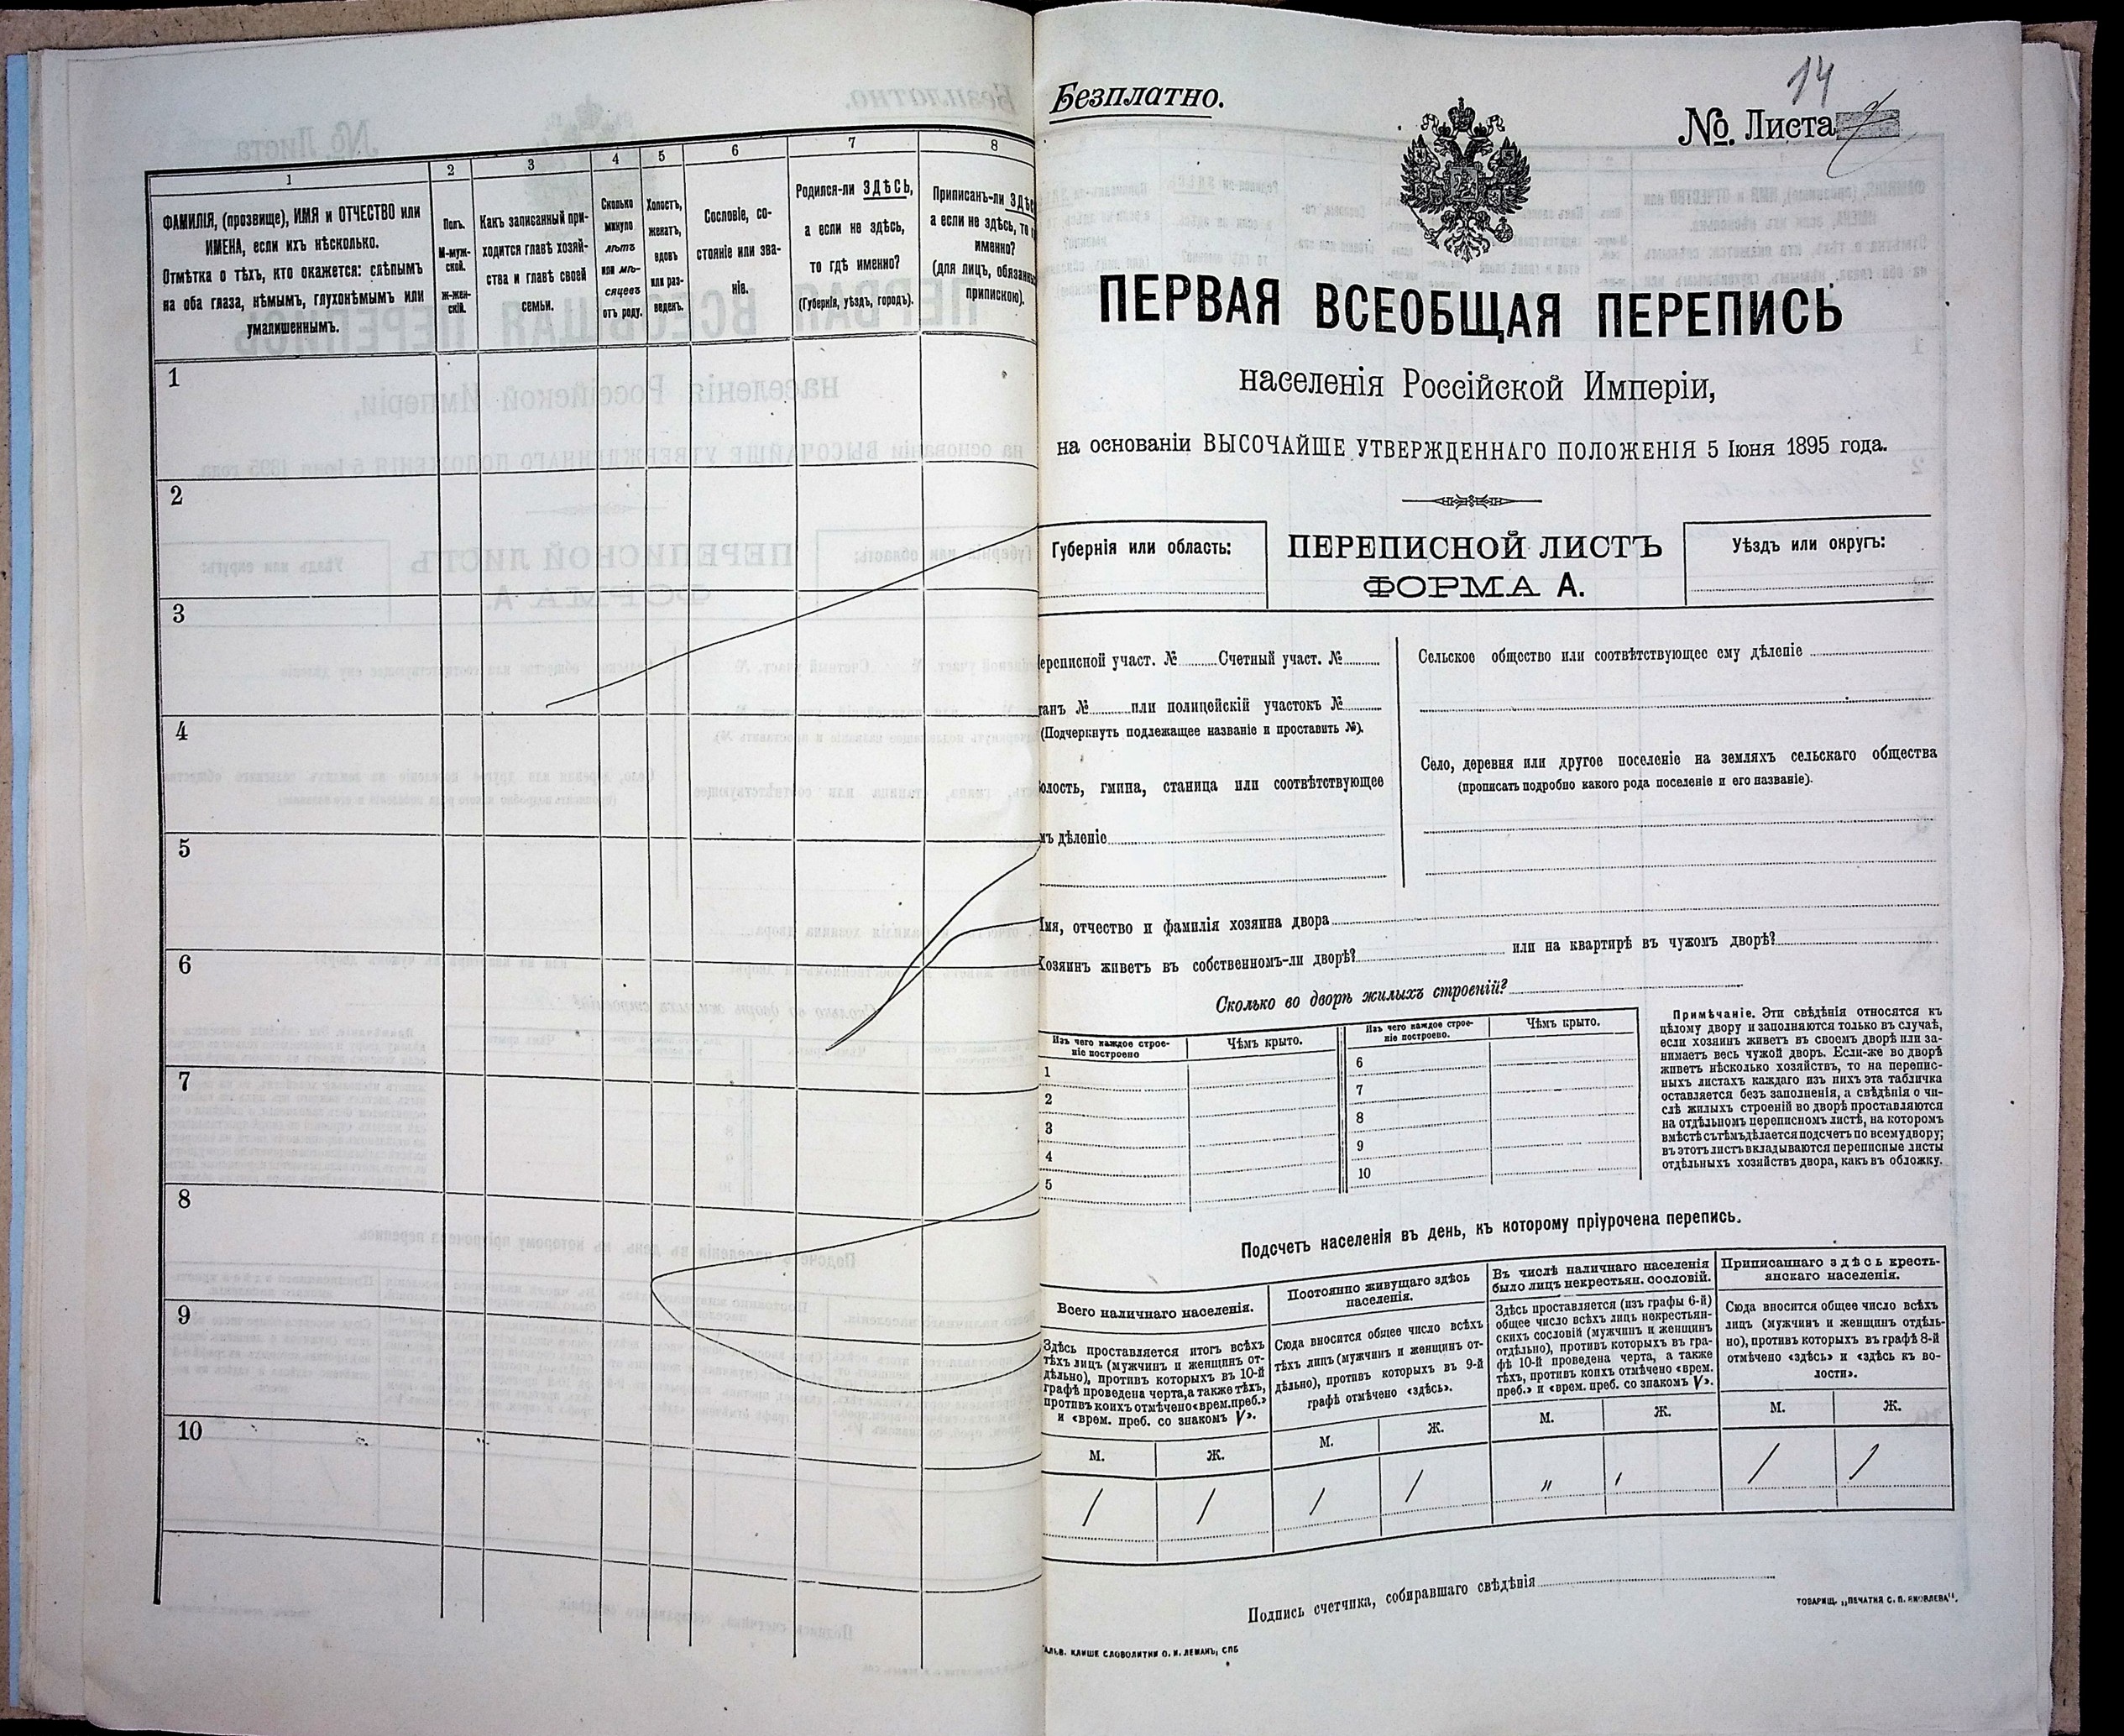 1
2
3
4
5
6
7
8
ФАМИЛІЯ, (прозвище), ИМЯ и ОТЧЕСТВО или
ИМЕНА, если ихъ нѣсколько.
Отмѣтка о тѣхъ, кто окажется: слѣпымъ
на оба глаза, нѣмымъ, глухонѣмымъ или
умалишеннымъ.
Полъ.
М-муж-
ской.
Ж-жен-
скій.
Какъ записанный при-
ходится главѣ хозяй-
ства и главѣ своей
семьи.
Сколько
минуло
лѣтъ
или мѣ-
сяцевъ
отъ роду.
Холостъ,
женатъ,
вдовъ
или раз-
веденъ.
Сословіе, со-
стояніе или зва-
ніе.
Родился-ли ЗДѢСЬ,
а если не здѣсь,
то гдѣ именно?
(Губернія, уѣздъ, городъ).
Приписанъ-ли ЗДѢС
а если не здѣсь, то
именно?
(для лицъ, обязанны
припискою).
1
2
3
4
5
6
7
8
9
10
14
Безплатно.
№. Листа
ПЕРВАЯ ВСЕОБЩАЯ ПЕРЕПИСЬ
населенія Россійской Имперіи,
на основаніи ВЫСОЧАЙШЕ УТВЕРЖДЕННАГО ПОЛОЖЕНІЯ 5 Іюня 1895 года.
Губернія или область:
ПЕРЕПИСНОЙ ЛИСТЪ
ФОРМА А.
Уѣздъ или округъ:
ереписной участ. № Счетный участ. №
танъ № или полицейскій участокъ №
(Подчеркнуть подлежащее названіе и проставить №).
олость, гмина, станица или соотвѣтствующее
мъ дѣленіе
Сельское общество или соотвѣтствующее ему дѣленіе
Село, деревня или другое поселеніе на земляхъ сельскаго общества
(прописать подробно какого рода поселеніе и его названіе).
Имя, отчество и фамилія хозяина двора
Хозяинъ живетъ въ собственномъ-ли дворѣ? или на квартирѣ въ чужомъ дворѣ?
Сколько во дворѣ жилыхъ строеній?
Изъ чего каждое строе-
ніе построено
Чѣмъ крыто.
Изъ чего каждое строе-
ніе построено.
Чѣмъ крыто.
1
2
3
4
5
6
7
8
9
10
Примѣчаніе. Эти свѣдѣнія относятся къ
цѣлому двору и заполняются только въ случаѣ,
если хозяинъ живетъ въ своемъ дворѣ или за-
нимаетъ весь чужой дворъ. Если-же во дворѣ
живетъ нѣсколько хозяйствъ, то на перепис-
ныхъ листахъ каждаго изъ нихъ эта табличка
оставляется безъ заполненія, а свѣдѣнія о чи-
слѣ жилыхъ строеній во дворѣ проставляются
на отдѣльномъ переписномъ листѣ, на которомъ
вмѣстѣ съ тѣмъ дѣлается подсчетъ по всему двору;
въ этотъ листъ вкладываются переписные листы
отдѣльныхъ хозяйствъ двора, какъ въ обложку.
Подсчетъ населенія въ день, къ которому пріурочена перепись.
Всего наличнаго населенія.
Здѣсь проставляется итогъ всѣхъ
тѣхъ лицъ (мужчинъ и женщинъ от-
дѣльно), противъ которыхъ въ 10-й
графѣ проведена черта, а также тѣхъ,
противъ коихъ отмѣчено «врем. преб.»
и «врем. преб. со знакомъ V».
М. Ж.
Постоянно живущаго здѣсь
населенія.
Сюда вносится общее число всѣхъ
тѣхъ лицъ (мужчинъ и женщинъ от-
дѣльно), противъ которыхъ въ 9-й
графѣ отмѣчено «здѣсь».
М. Ж.
Въ числѣ наличнаго населенія
было лицъ некрестьян. сословій.
Здѣсь проставляется (изъ графы 6-й)
общее число всѣхъ лицъ некрестьян-
скихъ сословій (мужчинъ и женщинъ
отдѣльно), противъ которыхъ въ гра-
фѣ 10-й проведена черта, а также
тѣхъ, противъ коихъ отмѣчено «врем.
преб.» и «врем. преб. со знакомъ V».
М. Ж.
Приписаннаго здѣсь кресть-
янскаго населенія.
Сюда вносится общее число всѣхъ
лицъ (мужчинъ и женщинъ отдѣль-
но), противъ которыхъ въ графѣ 8-й
отмѣчено «здѣсь» и «здѣсь къ во-
лости».
М. Ж.
1 1 1 1 " 1 1
Подпись счетчика, собиравшаго свѣдѣнія
ТОВАРИЩ. „ПЕЧАТНЯ С. П. ЯКОВЛЕВА".
АЛЬВ. КЛИШЕ СЛОВОЛИТНИ О. И. ЛЕМАНЪ, СПБ